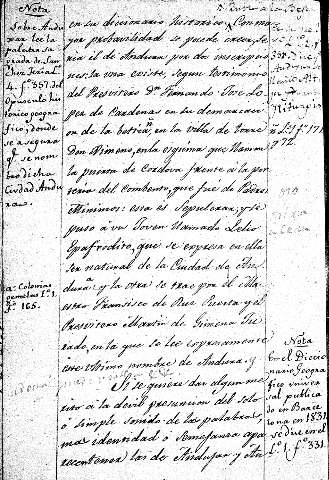 Nota
Sobre Andu
xar lee la
palabra sa
grada de San
chez Feria l.
4. f.º 357. del
Opusculo his
torico geogra
fico, donde
se asegura
q.e se nom
ria dicha
Ciudad Andu
ra
a. Colonias
gemelas l.º 1.
f.º 165.
en su diccionario historico. Con ma
yor probabilidad se puede creer, se
ria el de Andura por dos inscripcio
nes: la una existe, segun testimonio
del Presvitero Dn. Fernando Jose Lo
pez de Cardenas en su demarcacion
de la betica, en la villa de Torre
Don Ximeno, en la esquina que llaman
la puerta de Cordova frente a la por
teria del Combento, que fue de Padres
Minimos: esta es Sepulcral, y se
puso a un Joven llamado Lelio
Epafrodito, que se expresa en ella
ser natural de la Ciudad de An
dura: y la otra se trae por el Ma
estro Francisco de Rus Puerta y el
Presvitero Martin de Gimena Ju
rado, en la que se lee expresamente
este ultimo nombre de Andura. y
Si se quiere dar algun me
rito a la devil presuncion del solo
o simple sonido de las palabras,
una identidad o semejanza apa
recen tener los de Andujar y An
Nota
En el Diccio
nario Geogra
fico univer
sal publica
do en Barce
lona en 1831.
se dice en el
t.º 1. f.º 331.